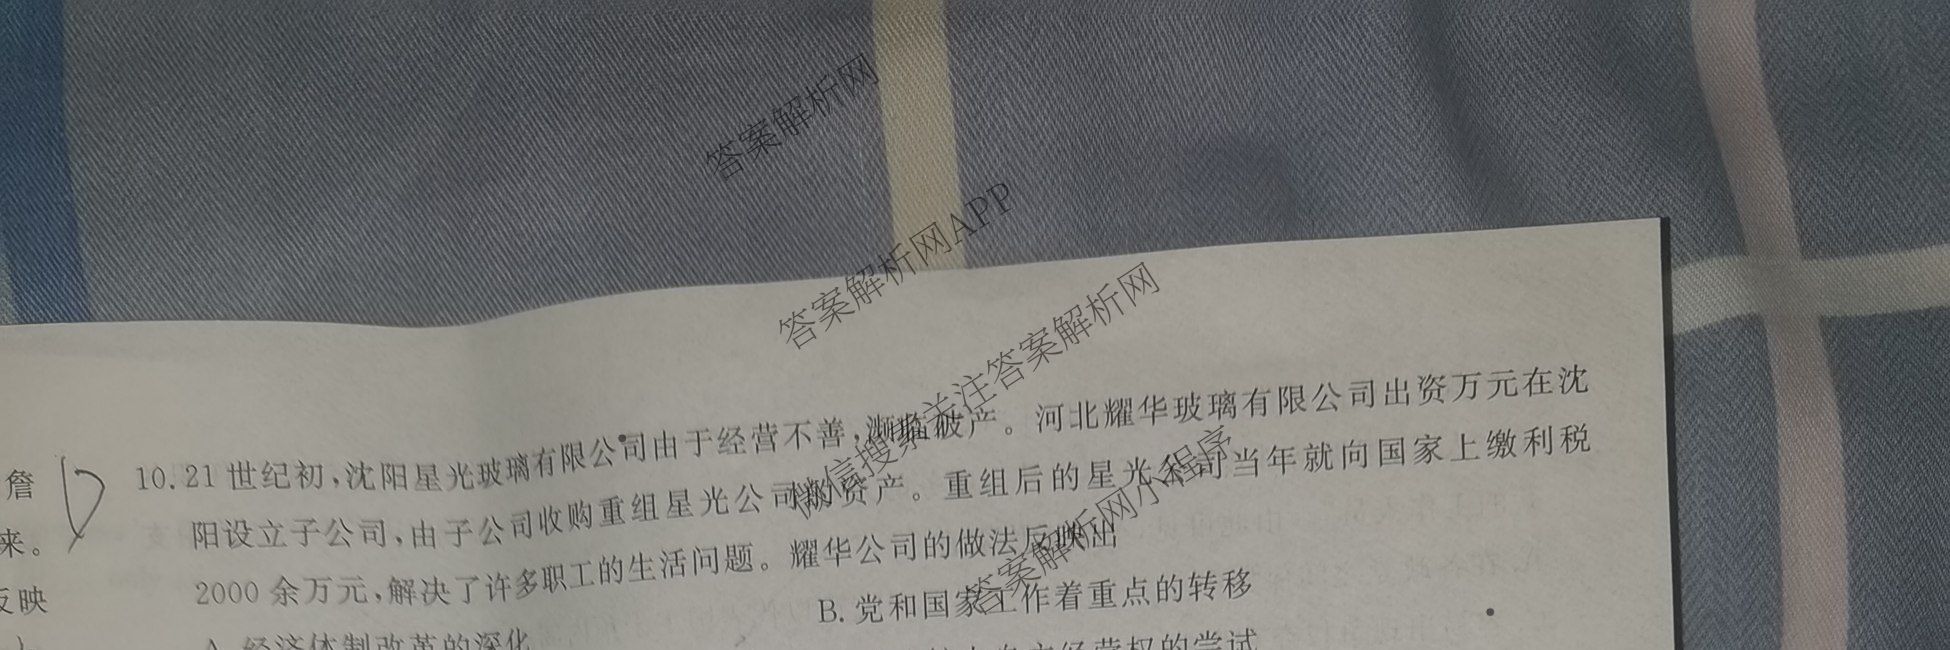 答案解析网
答案解析网APP
微信搜索关注答案解析网
答案解析网小程序
詹
来。
反映
D
10.21世纪初,沈阳星光玻璃有限公司由于经营不善,濒临破产。河北耀华玻璃有限公司出资万元在沈
阳设立子公司,由子公司收购重组星光公司的资产。重组后的星光公司当年就向国家上缴利税
2000余万元,解决了许多职工的生活问题。耀华公司的做法反映出
A.经济体制改革的深化
B.党和国家工作着重点的转移
自主经营权的尝试